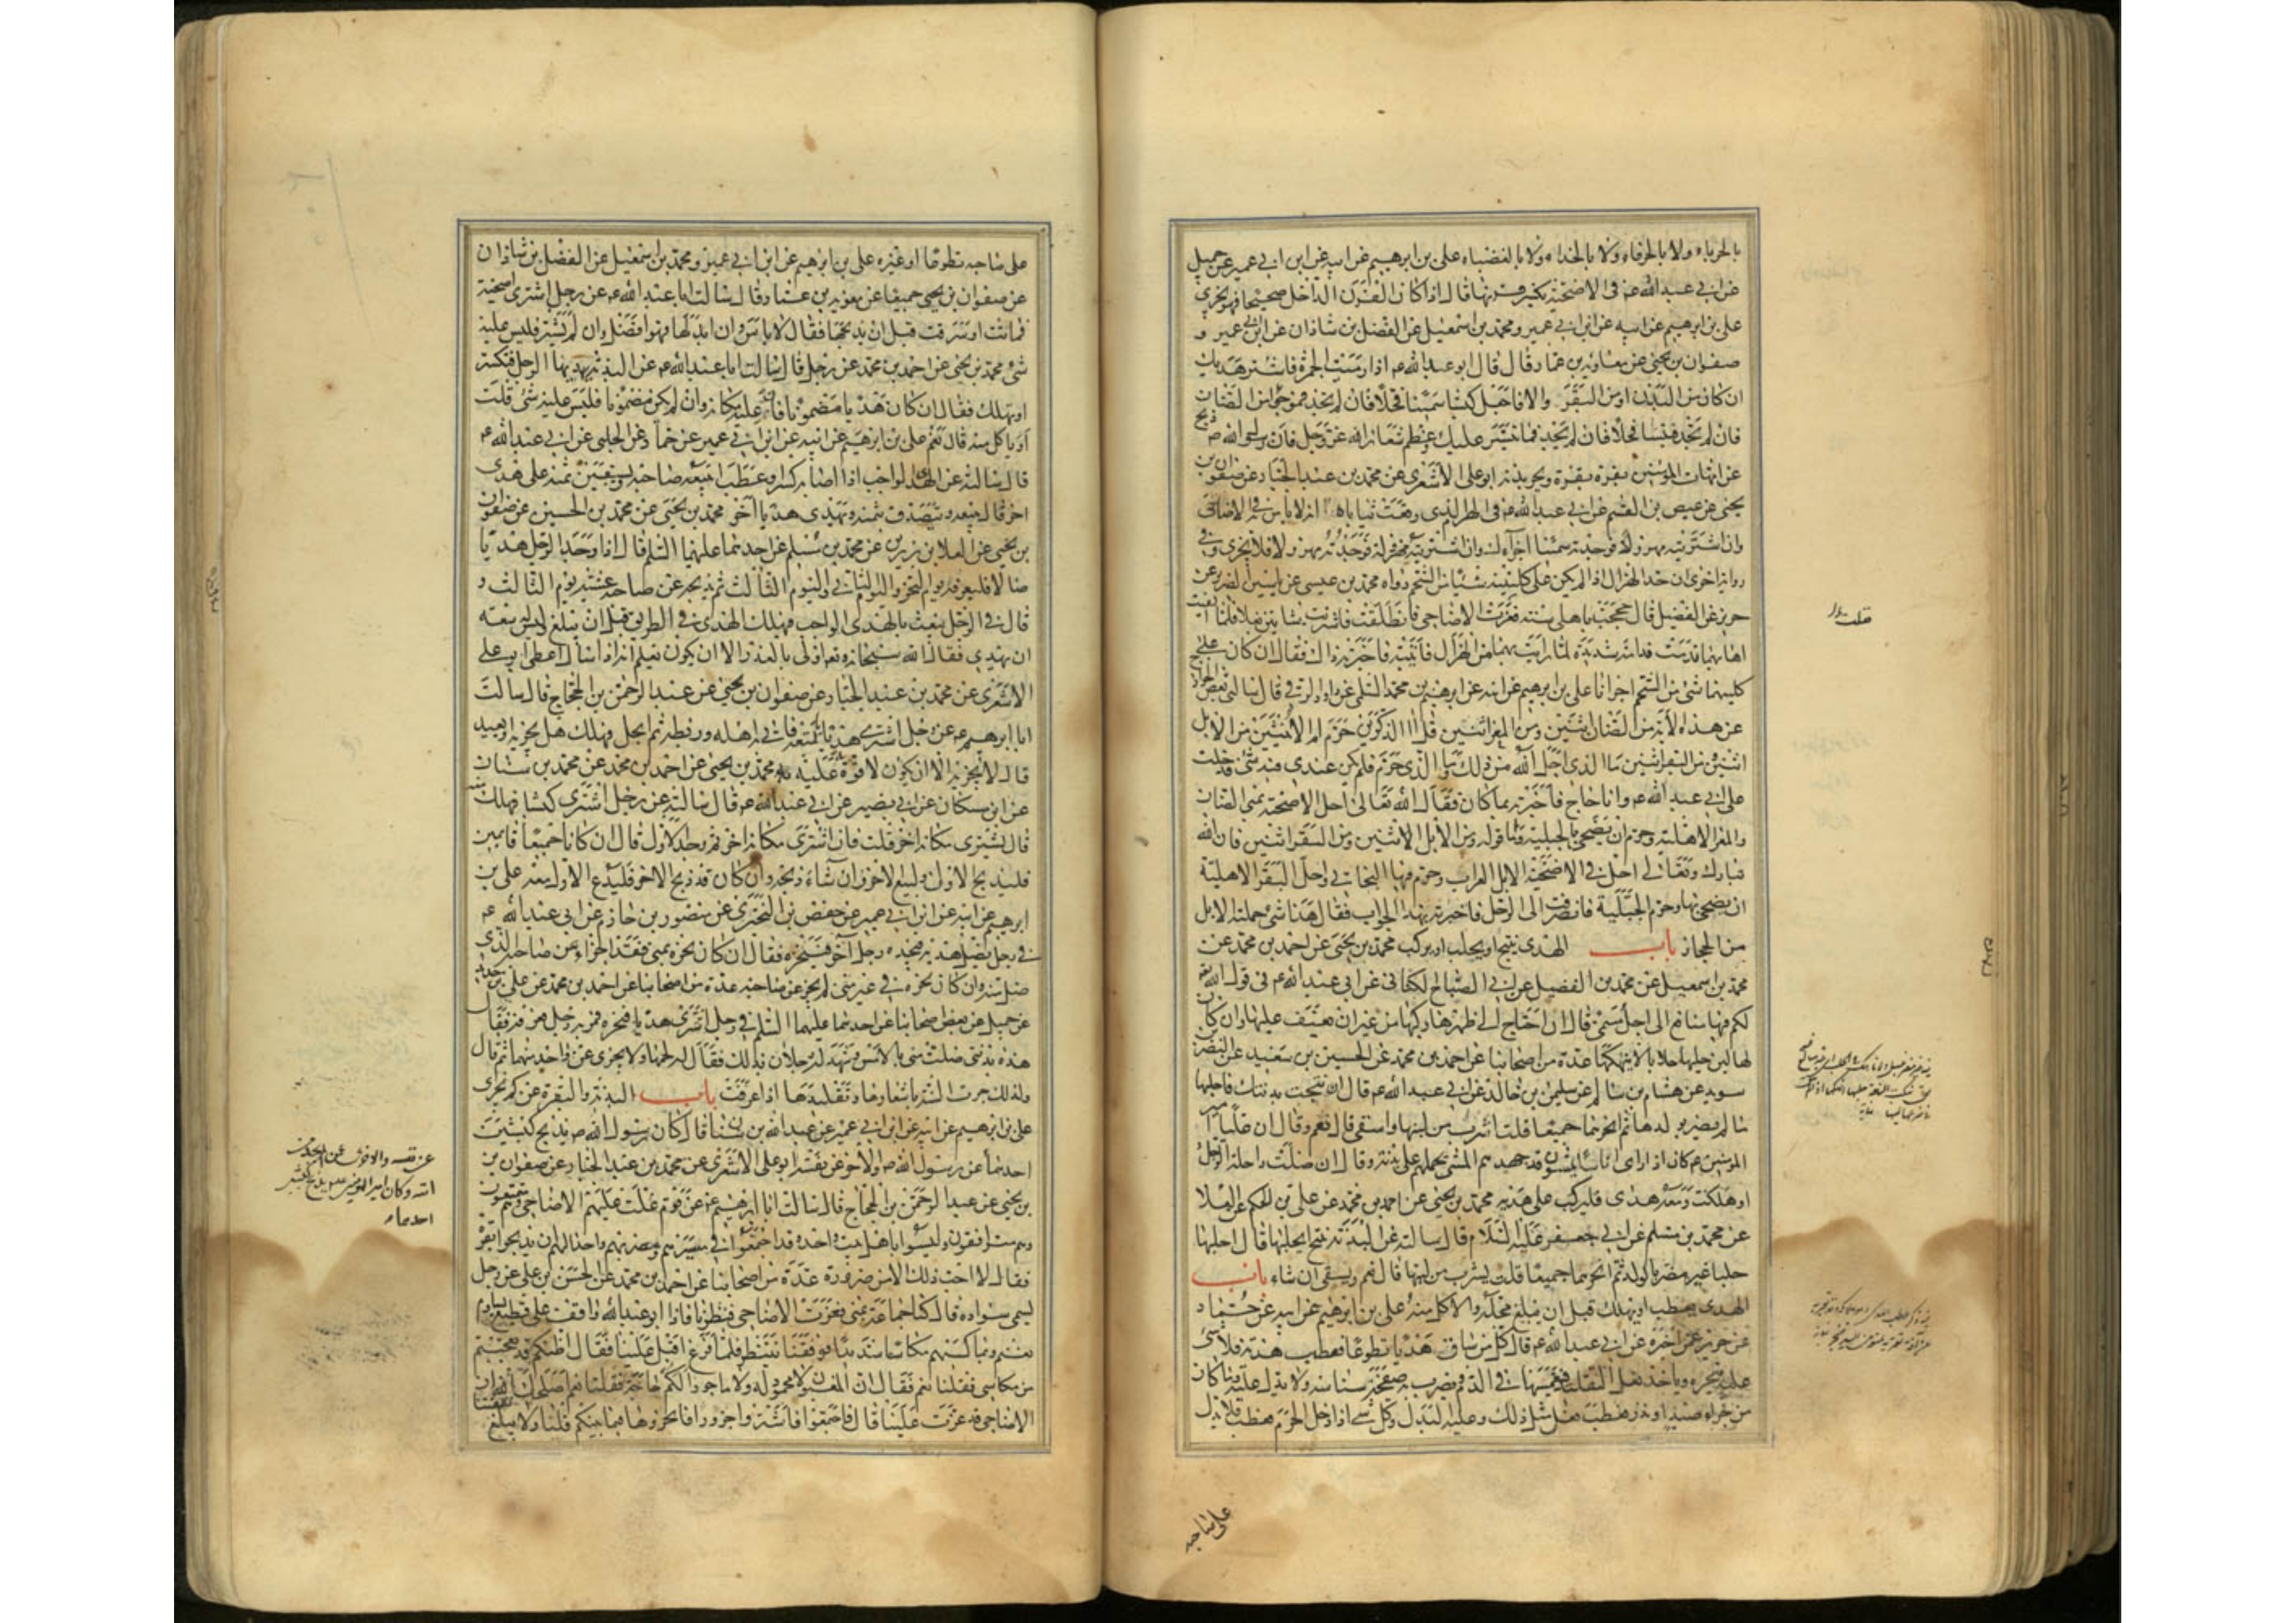 بالجرباء ولا بالخرقاء ولا بالحذاء ولا بالعضباء علي بن ابرهيم عن ابيه عن ابن ابي عمير عن جميل
عن ابي عبد الله ع في الاضحية يكسر قرنها قال اذا كان القرن الداخل صحيحا فهو يجزي
علي بن ابرهيم عن ابيه عن ابن ابي عمير ومحمد بن اسمعيل عن الفضل بن شاذان عن ابن ابي عمير و
صفوان بن يحيى عن معاوية بن عمار قال قال ابو عبد الله ع اذا رميت الجمرة فاشتر هديك
ان كان من البدن او من البقر والا فاجعل كبشا سمينا فحلا فان لم تجد فموجوا من الضان
فان لم تجد فتيسا فحلا فان لم تجد فما تيسر عليك وعظم شعائر الله عز وجل فان رسول الله ص ذبح
عن امهات المؤمنين بقرة بقرة ونحر بدنة ابو علي الاشعري عن محمد بن عبد الجبار عن صفوان بن
يحيى عن عيص بن القسم عن ابي عبد الله ع في الهرم الذي وقعت ثناياه انه لا باس به في الاضاحي
وان اشتريته مهزولا فوجدته سمينا اجزاك وان اشتريته مهزولا فوجدته مهزولا فلا يجزي وفي
رواية اخرى ان حد الهزال اذا لم يكن على كليتيه شيء من الشحم رواه محمد بن عيسى عن ياسين الضرير عن
حريز عن الفضيل قال حججت باهلي سنة فعزت الاضاحي فانطلقت فاشتريت شاتين بغلاء فلما القيت
اهابيهما ندمت ندامة شديدة لما رايت بهما من الهزال فاتيته فاخبرته ذلك فقال ان كان على
كليتيهما شيء من الشحم اجزاتا علي بن ابرهيم عن ابيه عن ابرهيم بن محمد السلمي عن داود الرقي قال سالني بعض الخوارج
عن هذه الاية من الضان اثنين ومن المعز اثنين قل ءالذكرين حرم ام الانثيين ومن الابل
اثنين ومن البقر اثنين ما الذي احل الله من ذلك وما الذي حرم فلم يكن عندي فيه شيء فدخلت
على ابي عبد الله ع وانا حاج فاخبرته بما كان فقال ان الله تعالى احل في الاضحية بمنى الضان
والمعز الاهلية وحرم ان يضحي بالجبلية واما قوله ومن الابل اثنين ومن البقر اثنين فان الله
تبارك وتعالى احل في الاضحية الابل العراب وحرم فيها البخاتي واحل البقر الاهلية
ان يضحي بها وحرم الجبلية فانصرفت الى الرجل فاخبرته بهذا الجواب فقال هذا شيء حملته الابل
من الحجاز باب الهدي ينتج او يحلب او يركب محمد بن يحيى عن احمد بن محمد عن
محمد بن اسمعيل عن محمد بن الفضيل عن ابي الصباح الكناني عن ابي عبد الله ع في قول الله
لكم فيها منافع الى اجل مسمى قال ان احتاج الى ظهرها ركبها من غير ان يعنف عليها وان كان
لها لبن حلبها حلابا لا ينهكها عدة من اصحابنا عن احمد بن محمد عن الحسين بن سعيد عن النضر بن
سويد عن هشام بن سالم عن سليمن بن خالد عن ابي عبد الله ع قال ان نتجت بدنتك فاحلبها
ما لم يضر بولدها ثم انحرهما جميعا قلت اشرب من لبنها واسقي قال نعم وقال ان عليا امير
المؤمنين ع كان اذا راى اناسا يمشون قد جهدهم المشي حملهم على بدنه وقال ان ضلت راحلة الرجل
او هلكت ومعه هدي فليركب على هديه محمد بن يحيى عن احمد بن محمد عن علي بن الحكم عن العلا
عن محمد بن مسلم عن ابي جعفر عليه السلام قال سالته عن البدنة تنتج ايحلبها قال احلبها
حلبا غير مضر بالولد ثم انحرهما جميعا قلت يشرب من لبنها قال نعم ويسقي ان شاء باب
الهدي يعطب او يهلك قبل ان يبلغ محله والاكل منه علي بن ابرهيم عن ابيه عن حماد
عن حريز عمن اخبره عن ابي عبد الله ع قال كل من ساق هديا تطوعا فعطب هديه فلا شيء
عليه ينحره وياخذ نعل التقليد فيغمسها في الدم فيضرب به صفحة سنامه ولا بدل عليه وما كان
من جزاء صيد او نذر فعطب فعل مثل ذلك وعليه البدل وكل شيء اذا دخل الحرم فعطب فلا بدل
على صاحبه
قلت
على صاحبه تطوعا او غيره علي بن ابرهيم عن ابن ابي عمير ومحمد بن اسمعيل عن الفضل بن شاذان
عن صفوان بن يحيى جميعا عن معوية بن عمار قال سالت ابا عبد الله ع عن رجل اشترى اضحية
فماتت او سرقت قبل ان يذبحها فقال لا باس وان ابدلها فهو افضل وان لم يشتر فليس عليه
شيء محمد بن يحيى عن احمد بن محمد عن رجل قال سالت ابا عبد الله ع عن البدنة يهديها الرجل فتكسر
او تهلك فقال ان كان هديا مضمونا فان عليه مكانه وان لم يكن مضمونا فليس عليه شيء قلت
او ياكل منه قال نعم علي بن ابرهيم عن ابيه عن ابن ابي عمير عن حماد عن الحلبي عن ابي عبد الله ع
قال سالته عن الهدي الواجب اذا اصابه كسر او عطب ايبيعه صاحبه ويستعين بثمنه على هدي
اخر قال يبيعه ويتصدق بثمنه ويهدي هديا آخر محمد بن يحيى عن محمد بن الحسين عن صفوان
بن يحيى عن العلا بن رزين عن محمد بن مسلم عن احدهما عليهما السلم قال اذا وجد الرجل هديا
ضالا فليعرفه يوم النحر واليوم الثاني واليوم الثالث ثم يذبحه عن صاحبه عشية يوم الثالث و
قال في الرجل يبعث بالهدي الواجب فيهلك الهدي في الطريق قبل ان يبلغ وليس له سعة
ان يهدي فقال الله سبحانه وتعالى اولى بالعذر الا ان يكون يعلم انه اذا سال اعطي ابو علي
الاشعري عن محمد بن عبد الجبار عن صفوان بن يحيى عن عبد الرحمن بن الحجاج قال سالت
ابا ابرهيم ع عن رجل اشترى هديا لمتعته فاتى به اهله وربطه ثم انحل فهلك هل يجزيه او يعيد
قال لا يجزيه الا ان يكون لا قوة به عليه محمد بن يحيى عن احمد بن محمد عن محمد بن سنان
عن ابن مسكان عن ابي بصير عن ابي عبد الله ع قال سالته عن رجل اشترى كبشا فهلك منه
قال يشتري مكانه اخر قلت فان اشترى مكانه اخر ثم وجد الاول قال ان كانا جميعا قائمين
فليذبح الاول وليبع الاخر وان شاء ذبحه وان كان قد ذبح الاخر فليذبح الاول معه علي بن
ابرهيم عن ابيه عن ابن ابي عمير عن حفص بن البختري عن منصور بن حازم عن ابي عبد الله ع
في رجل يضل هديه فيجده رجل آخر فينحره فقال ان كان نحره بمنى فقد اجزاء عن صاحبه الذي
ضل منه وان كان نحره في غير منى لم يجز عن صاحبه عدة من اصحابنا عن احمد بن محمد عن علي بن حديد
عن جميل عن بعض اصحابنا عن احدهما عليهما السلم في رجل اشترى هديا فنحره فمر به رجل فعرفه فقال
هذه بدنتي ضلت مني بالامس وشهد له رجلان بذلك فقال له لحمها ولا يجزي عن واحد منهما ثم قال
ولذلك جرت السنة باشعارها وتقليدها اذا عرفت باب البدنة والبقرة عن كم تجزي
علي بن ابرهيم عن ابيه عن ابن ابي عمير عن عبد الله بن سنان قال كان رسول الله ص يذبح كبشين
احدهما عن رسول الله ص والاخر عن نفسه ابو علي الاشعري عن محمد بن عبد الجبار عن صفوان بن
بن يحيى عن عبد الرحمن بن الحجاج قال سالت ابا ابرهيم ع عن قوم غلت عليهم الاضاحي وهم متمتعون
وهم مترافقون وليسوا باهل بيت واحد وقد اجتمعوا في مسيرهم ومضربهم واحد الهم ان يذبحوا بقرة
فقال لا احب ذلك الا من ضرورة عدة من اصحابنا عن احمد بن محمد عن الحسن بن علي عن رجل
يسمى سوادة قال كنا جماعة بمنى فعزت الاضاحي فنظرنا فاذا ابو عبد الله ع واقف على قطيع يساوم
بغنم ويماكسهم مكاسا شديدا فوقفنا ننتظر فلما فرغ اقبل علينا فقال اظنكم قد تعجبتم
من مكاسي فقلنا نعم فقال ان المغبون لا محمود ولا ماجور الكم حاجة فقلنا نعم اصلحك الله ان
الاضاحي قد عزت علينا قال فاجتمعوا فاشتروا جزورا فانحروها فيما بينكم قلنا ولا يبلغ
عن نفسه والاخر عمن لم يجد من
امته وكان امير المؤمنين ع يذبح كبشين
احدهما